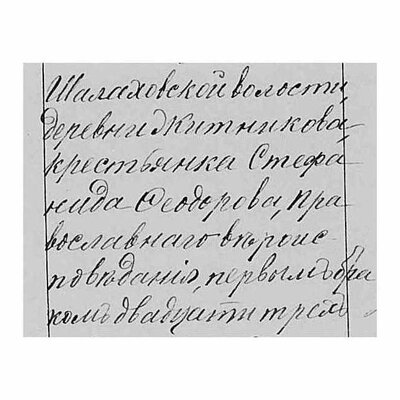 Шалаховской волости,
деревни Житникова,
крестьянка Стефа-
нида Ѳеодорова, пра-
вославнаго вѣроис-
повѣданія, первымъ бра-
комъ двадцати трехъ